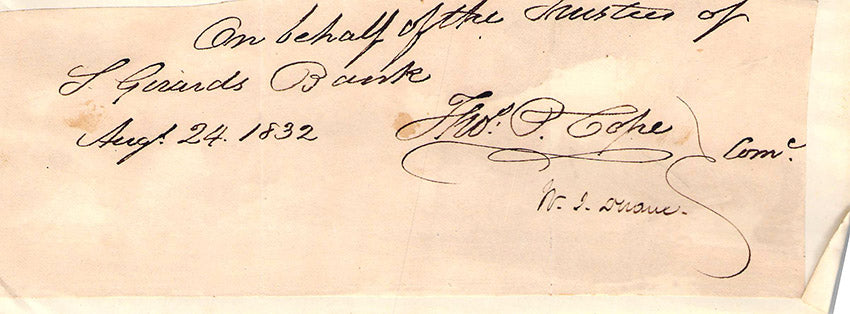 On behalf of the Trustees of
S. Girards Bank
Augt. 24. 1832
Thos. P. Cope
Come.
W. J. Duane.